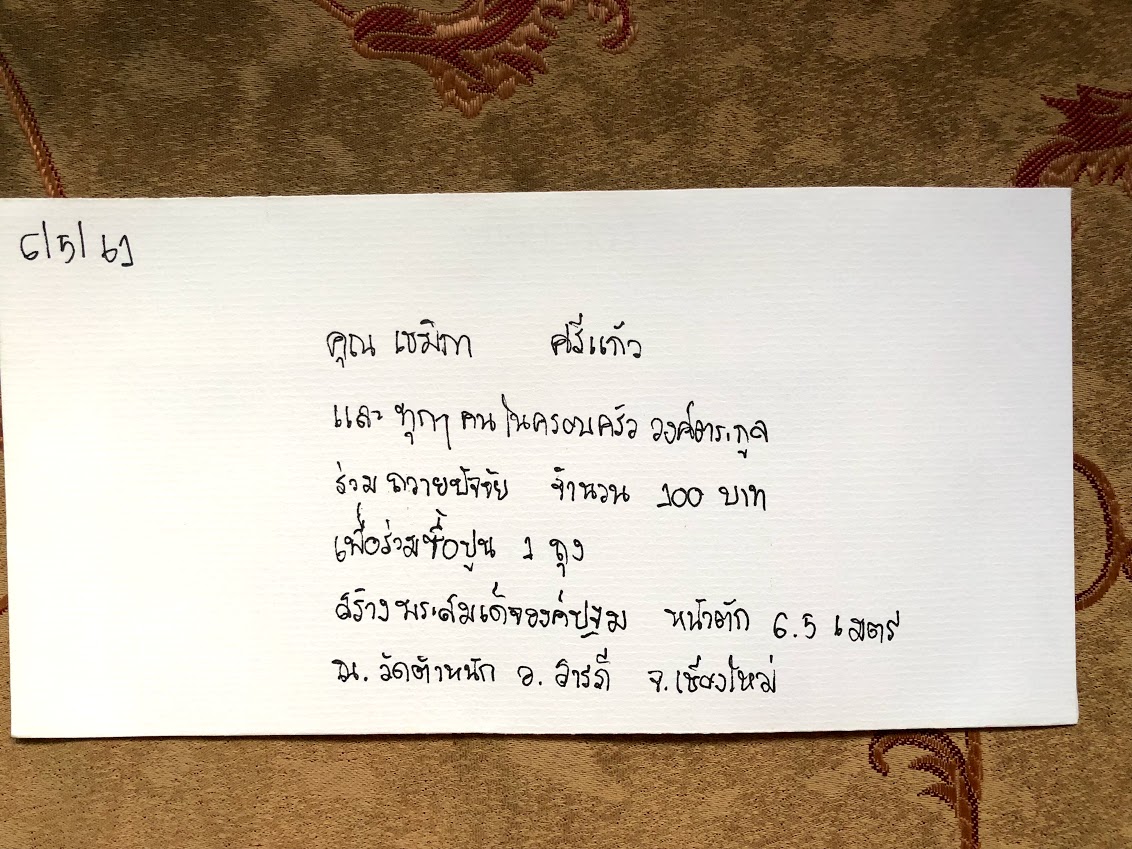 6/5/61
คุณ เขมิกา ศรีแก้ว
และ ทุกๆ คน ในครอบครัว วงศ์ตระกูล
ร่วม ถวายปัจจัย จำนวน 100 บาท
เพื่อร่วมซื้อปูน 1 ถุง
สร้างพระสมเด็จองค์ปฐม หน้าตัก 6.5 เมตร
ณ. วัดตำหนัก อ. สารภี จ.เชียงใหม่